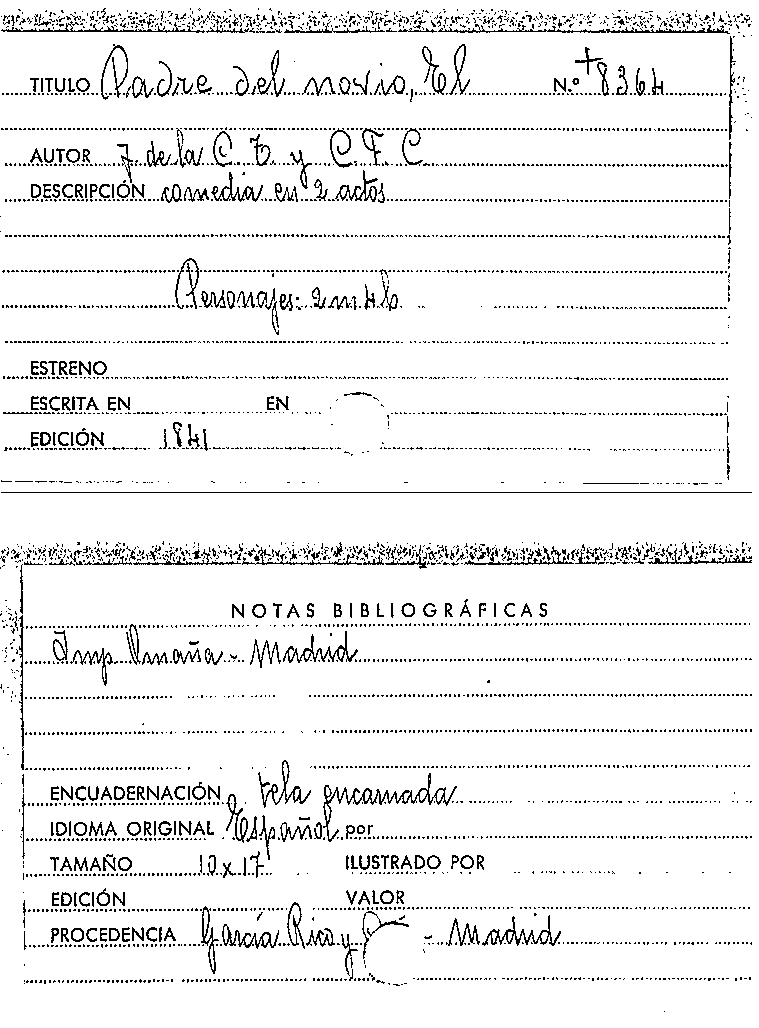 TITULO Padre del novio, El N.º +8364
AUTOR J. de la C. T. y C. F. C
DESCRIPCIÓN comedia en 2 actos
Personajes: 2m 4h
ESTRENO
ESCRITA EN EN
EDICIÓN 1841
NOTAS BIBLIOGRÁFICAS
Imp. Omaña - Madrid
ENCUADERNACIÓN tela encarnada
IDIOMA ORIGINAL Español por
TAMAÑO 10x17 ILUSTRADO POR
EDICIÓN VALOR
PROCEDENCIA García Rico y - Madrid